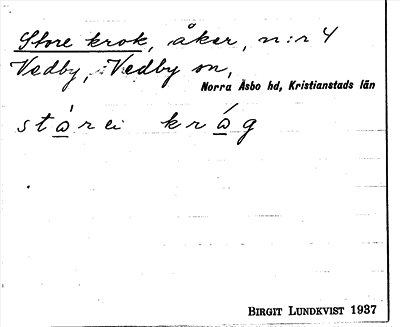 Store krok, åker, n:r 4
Vedby, Vedby sn,
Norra Åsbo hd, Kristianstads län
krå̱g
BIRGIT LUNDKVIST 1937